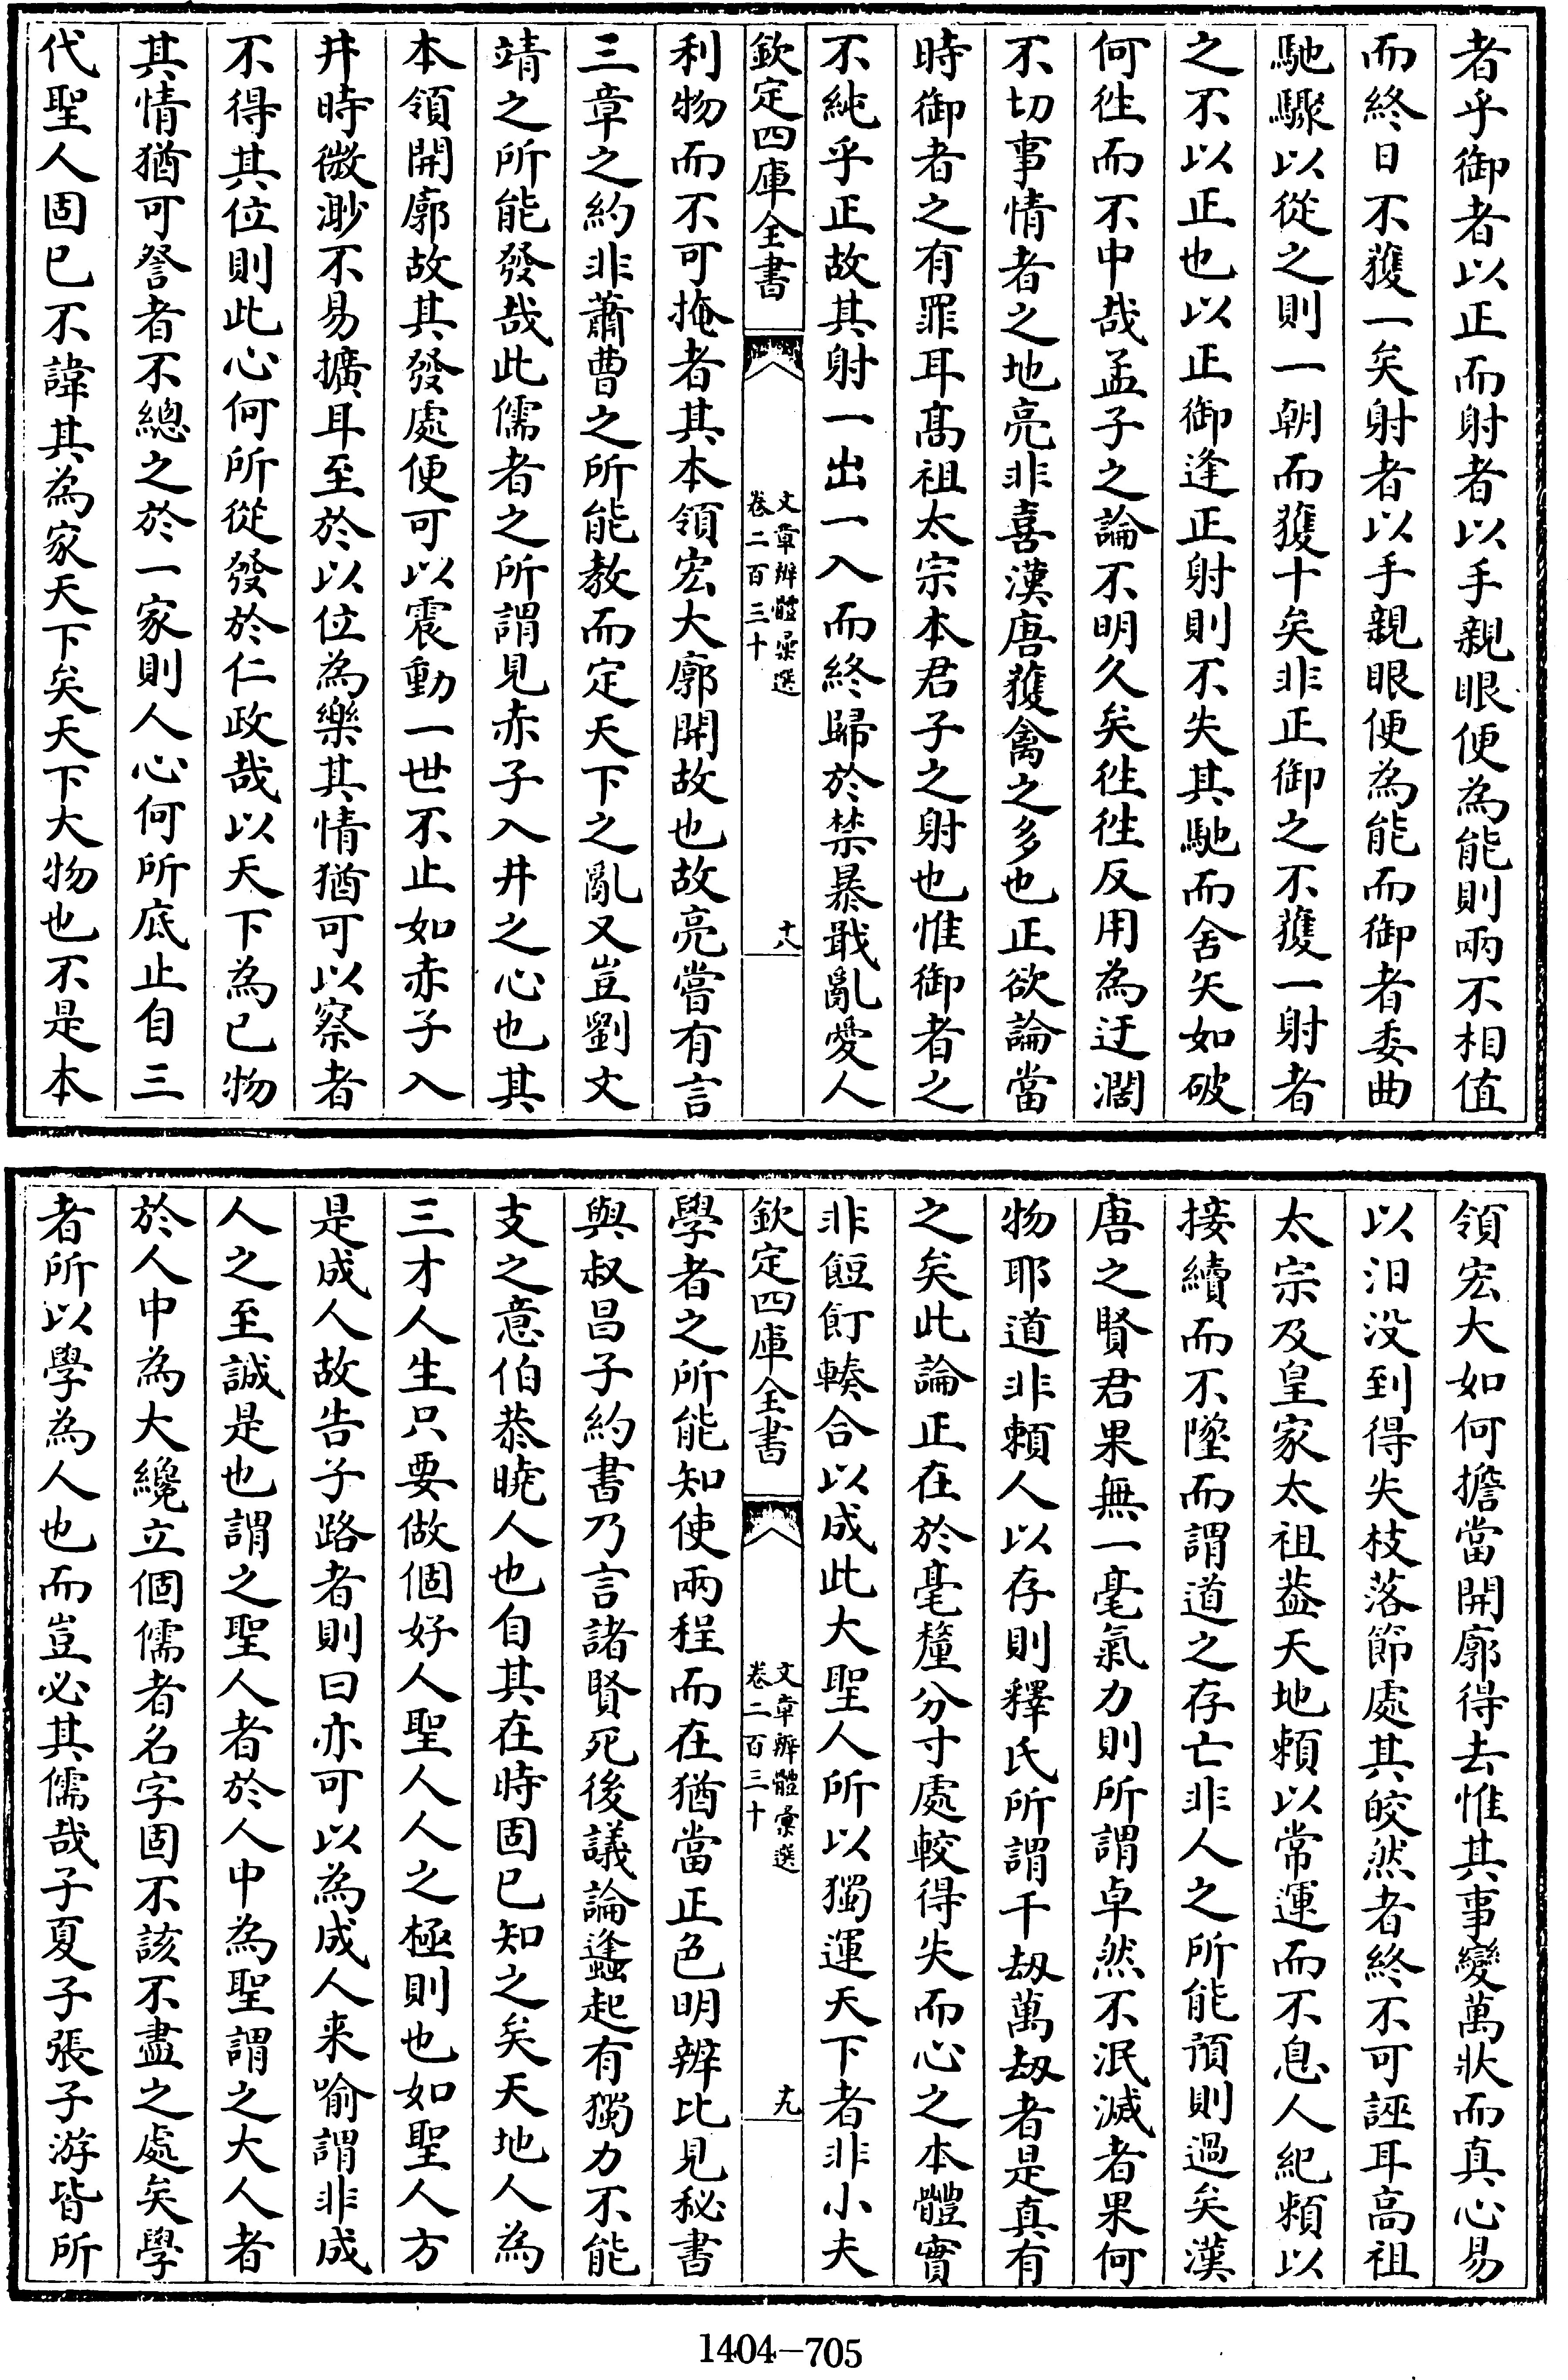 者乎御者以正而射者以手親眼便為能則兩不相值
而終日不獲一矣射者以手親眼便為能而御者委曲
馳驟以從之則一朝而獲十矣非正御之不獲一射者
之不以正也以正御逢正射則不失其馳而舍矢如破
何徃而不中哉孟子之論不明久矣徃徃反用為迂濶
不切事情者之地亮非喜漢唐獲禽之多也正欲論當
時御者之有罪耳髙祖太宗本君子之射也惟御者之
不純乎正故其射一出一入而終歸於禁暴戢亂愛人
欽定四庫全書
文章辨體彙選
卷二百三十
十八
利物而不可掩者其本領宏大廓開故也故亮嘗有言
三章之約非蕭曹之所能教而定天下之亂又豈劉文
靖之所能發哉此儒者之所謂見赤子入井之心也其
本領開廓故其發處便可以震動一世不止如赤子入
井時微渺不易擴耳至於以位為樂其情猶可以察者
不得其位則此心何所從發於仁政哉以天下為已物
其情猶可詧者不總之於一家則人心何所底止自三
代聖人固已不諱其為家天下矣天下大物也不是本
領宏大如何擔當開廓得去惟其事變萬狀而真心易
以汨没到得失枝落節處其皎然者終不可誣耳高祖
太宗及皇家太祖葢天地頼以常運而不息人紀頼以
接續而不墜而謂道之存亡非人之所能預則過矣漢
唐之賢君果無一毫氣力則所謂卓然不泯滅者果何
物耶道非頼人以存則釋氏所謂千劫萬劫者是真有
之矣此論正在於毫釐分寸處較得失而心之本體實
非餖飣輳合以成此大聖人所以獨運天下者非小夫
欽定四庫全書
文章辨體彙選
卷二百三十
十九
學者之所能知使兩程而在猶當正色明辨比見秘書
與叔昌子約書乃言諸賢死後議論蠭起有獨力不能
支之意伯恭曉人也自其在時固已知之矣天地人為
三才人生只要做個好人聖人人之極則也如聖人方
是成人故告子路者則曰亦可以為成人来喻謂非成
人之至誠是也謂之聖人者於人中為聖謂之大人者
於人中為大纔立個儒者名字固不該不盡之處矣學
者所以學為人也而豈必其儒哉子夏子張子游皆所
1404-705